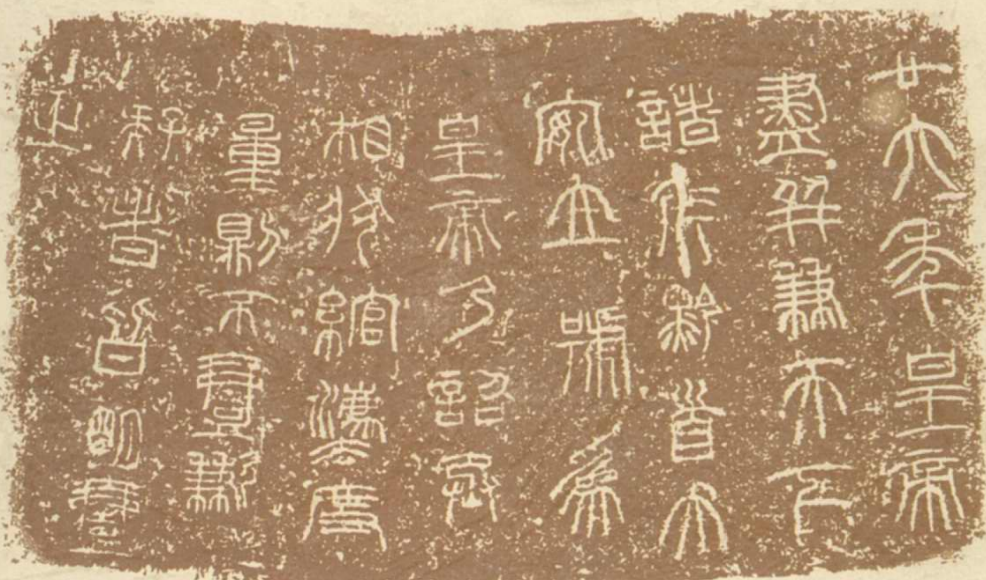 廿六年皇帝
盡并兼天下
諸矦黔首大
安立號為
皇帝乃詔丞
相狀綰灋度
量則不壹歉
疑者皆明壹
之